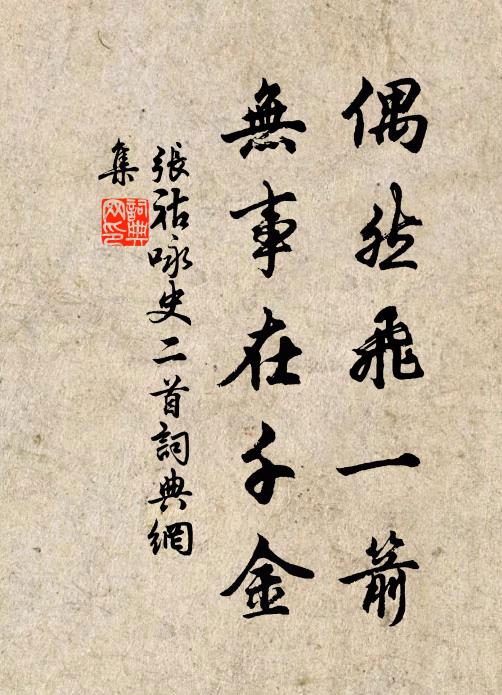 偶然飛一箭
無事在千金
張祜詠史二首詞典網
集
詞典
网印